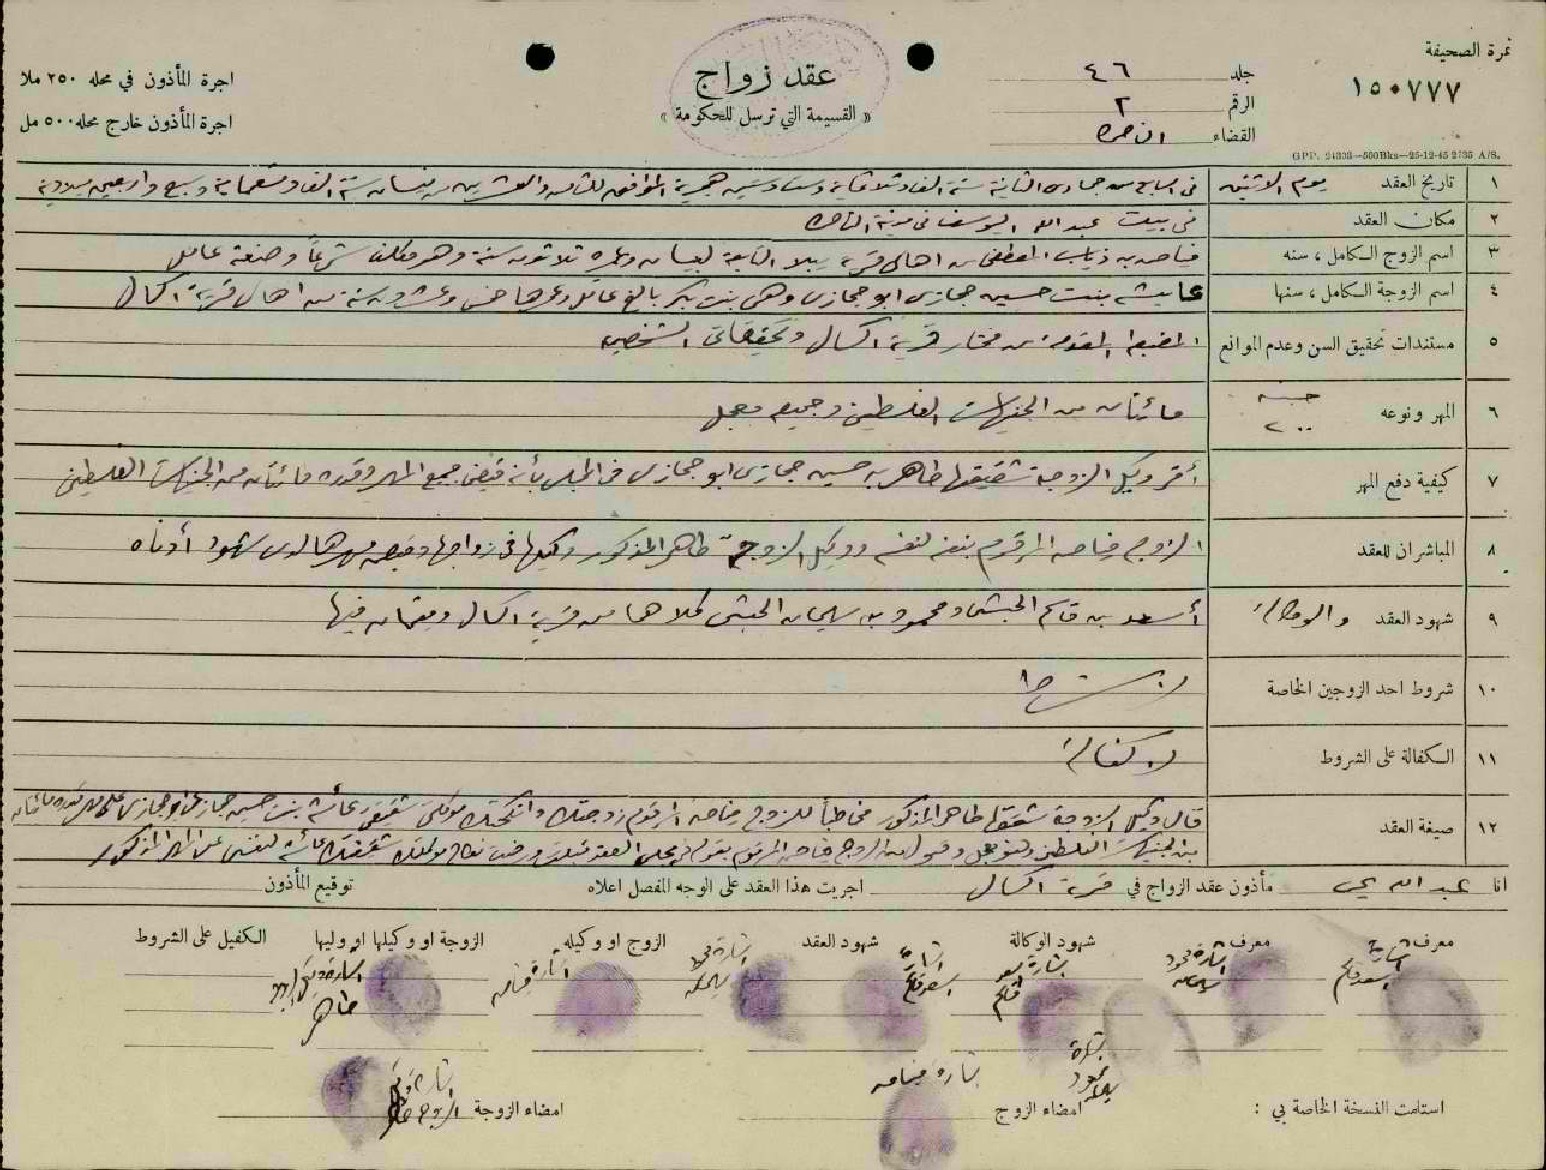 نمرة الصحيفة
١٥٠٧٧٧
جلد ٤٦
الرقم ٢
القضاء الناصرة
عقد زواج
« القسيمة التي ترسل للحكومة »
اجرة المأذون في محله ٢٥٠ ملا
اجرة المأذون خارج محله ٥٠٠ مل
GPP. 24333—500Bks—25-12-45 2735 A/S.
١ تاريخ العقد يوم الاثنين في السابع من جمادى الثانية سنة الف وثلاثماية وست وستين هجرية الموافق للثامن والعشرين من نيسان سنة الف وتسعماية وسبع واربعين ميلادية
٢ مكان العقد في بيت عبد الله اليوسف في مدينة الناصرة
٣ اسم الزوج الكامل ، سنه ذياب المصطفى من اهالي قرية التابعة لبيسان وعمره ثلاثون سنة وهو مكلف شرعاً وصنعته عامل
٤ اسم الزوجة الكامل ، سنها عايشه بنت حسين حجازي ابو حجازي وهي بنت بكر بالغ عاقل وعمرها خمس وعشرون سنة من اهالي قرية اكسال
٥ مستندات تحقيق السن وعدم الموانع المضبطه المقدمة من مختار قرية اكسال وتحقيقاتي الشخصيه
٦ المهر ونوعه جنيه ٢٠٠ مائتان من الجنيهات الفلسطيني وجميعه معجل
٧ كيفية دفع المهر أقر وكيل الزوجة شقيقها طاهر بن حسين حجازي ابو حجازي في المجلس بأنه قبض جميع المهر وقدره مائتان من الجنيهات الفلسطيني
٨ المباشران للعقد الزوج المرقوم بنفسه لنفسه ووكيل الزوجة طاهر المذكور وكيلها في زواجها وقبض مهرها لدى شهود أدناه
٩ شهود العقد والوكالة أسعد بن قاسم الحبشي ومحمود بن سليمان الحبشي كلاهما من قرية اكسال ومقيمان فيها
١٠ شروط احد الزوجين الخاصة لا شرط
١١ الكفالة على الشروط لا كفالة
١٢ صيغة العقد قال وكيل الزوجة شقيقها طاهر المذكور مخاطباً للزوج المرقوم زوجتك وانكحتك موكلتي شقيقتي عائشه بنت حسين حجازي ابو حجازي على مهر قدره مائتان
من الجنيهات الفلسطيني
انا عبد الله يحيى مأذون عقد الزواج في قرية اكسال اجريت هذا العقد على الوجه المفصل اعلاه توقيع المأذون
معرف معرف شهود الوكالة شهود العقد الزوج او وكيله الزوجة او وكيلها او وليها الكفيل على الشروط
استلمت النسخة الخاصة بي : امضاء الزوج امضاء الزوجة